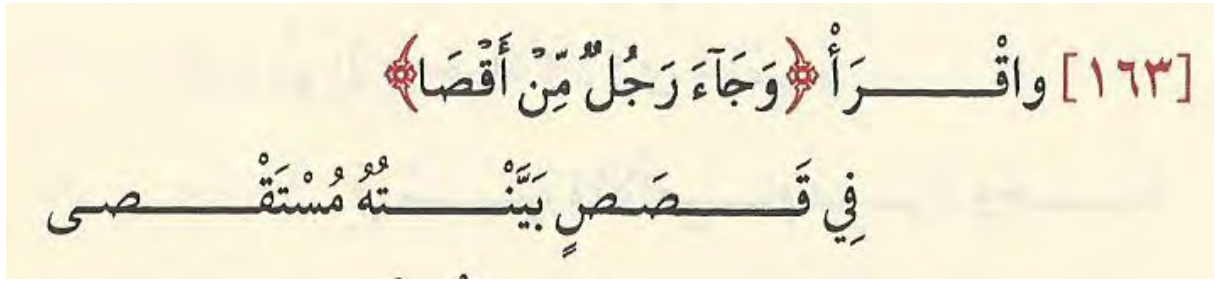 [١٦٣] واقْـــــرَأْ ﴿وَجَآءَ رَجُلٌ مِّنْ أَقْصَا﴾
فِي قَـــصَـصٍ بَيَّنْـــتُهُ مُسْتَقْـــصـى